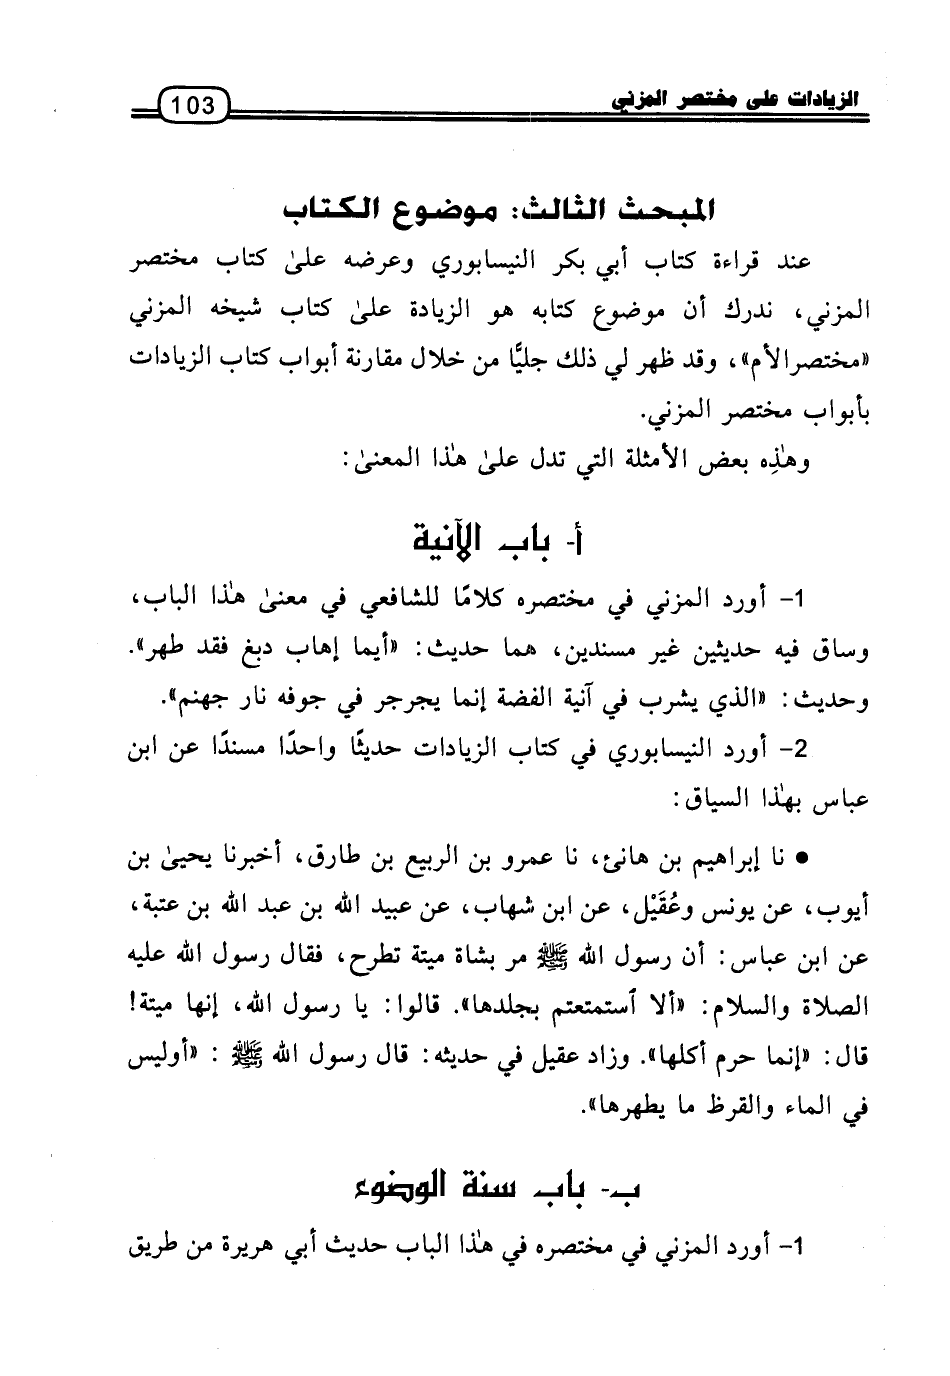 الزيادات على مختصر المزني
103
المبحث الثالث: موضوع الكتاب
عند قراءة كتاب أبي بكر النيسابوري وعرضه علىٰ كتاب مختصر
المزني، ندرك أن موضوع كتابه هو الزيادة علىٰ كتاب شيخه المزني
«مختصرالأم»، وقد ظهر لي ذلك جليًّا من خلال مقارنة أبواب كتاب الزيادات
بأبواب مختصر المزني.
وهٰذِه بعض الأمثلة التي تدل علىٰ هٰذا المعنىٰ:
أ- باب الآنية
1- أورد المزني في مختصره كلامًا للشافعي في معنىٰ هٰذا الباب،
وساق فيه حديثين غير مسندين، هما حديث: «أيما إهاب دبغ فقد طهر».
وحديث: «الذي يشرب في آنية الفضة إنما يجرجر في جوفه نار جهنم».
2- أورد النيسابوري في كتاب الزيادات حديثًا واحدًا مسندًا عن ابن
عباس بهٰذا السياق:
• نا إبراهيم بن هانئ، نا عمرو بن الربيع بن طارق، أخبرنا يحيىٰ بن
أيوب، عن يونس وعُقَيْل، عن ابن شهاب، عن عبيد الله بن عبد الله بن عتبة،
عن ابن عباس: أن رسول الله ﷺ مر بشاة ميتة تطرح، فقال رسول الله عليه
الصلاة والسلام: «ألا ٱستمتعتم بجلدها». قالوا: يا رسول الله، إنها ميتة!
قال: «إنما حرم أكلها». وزاد عقيل في حديثه: قال رسول الله ﷺ : «أوليس
في الماء والقرظ ما يطهرها».
ب- باب سنة الوضوء
1- أورد المزني في مختصره في هٰذا الباب حديث أبي هريرة من طريق